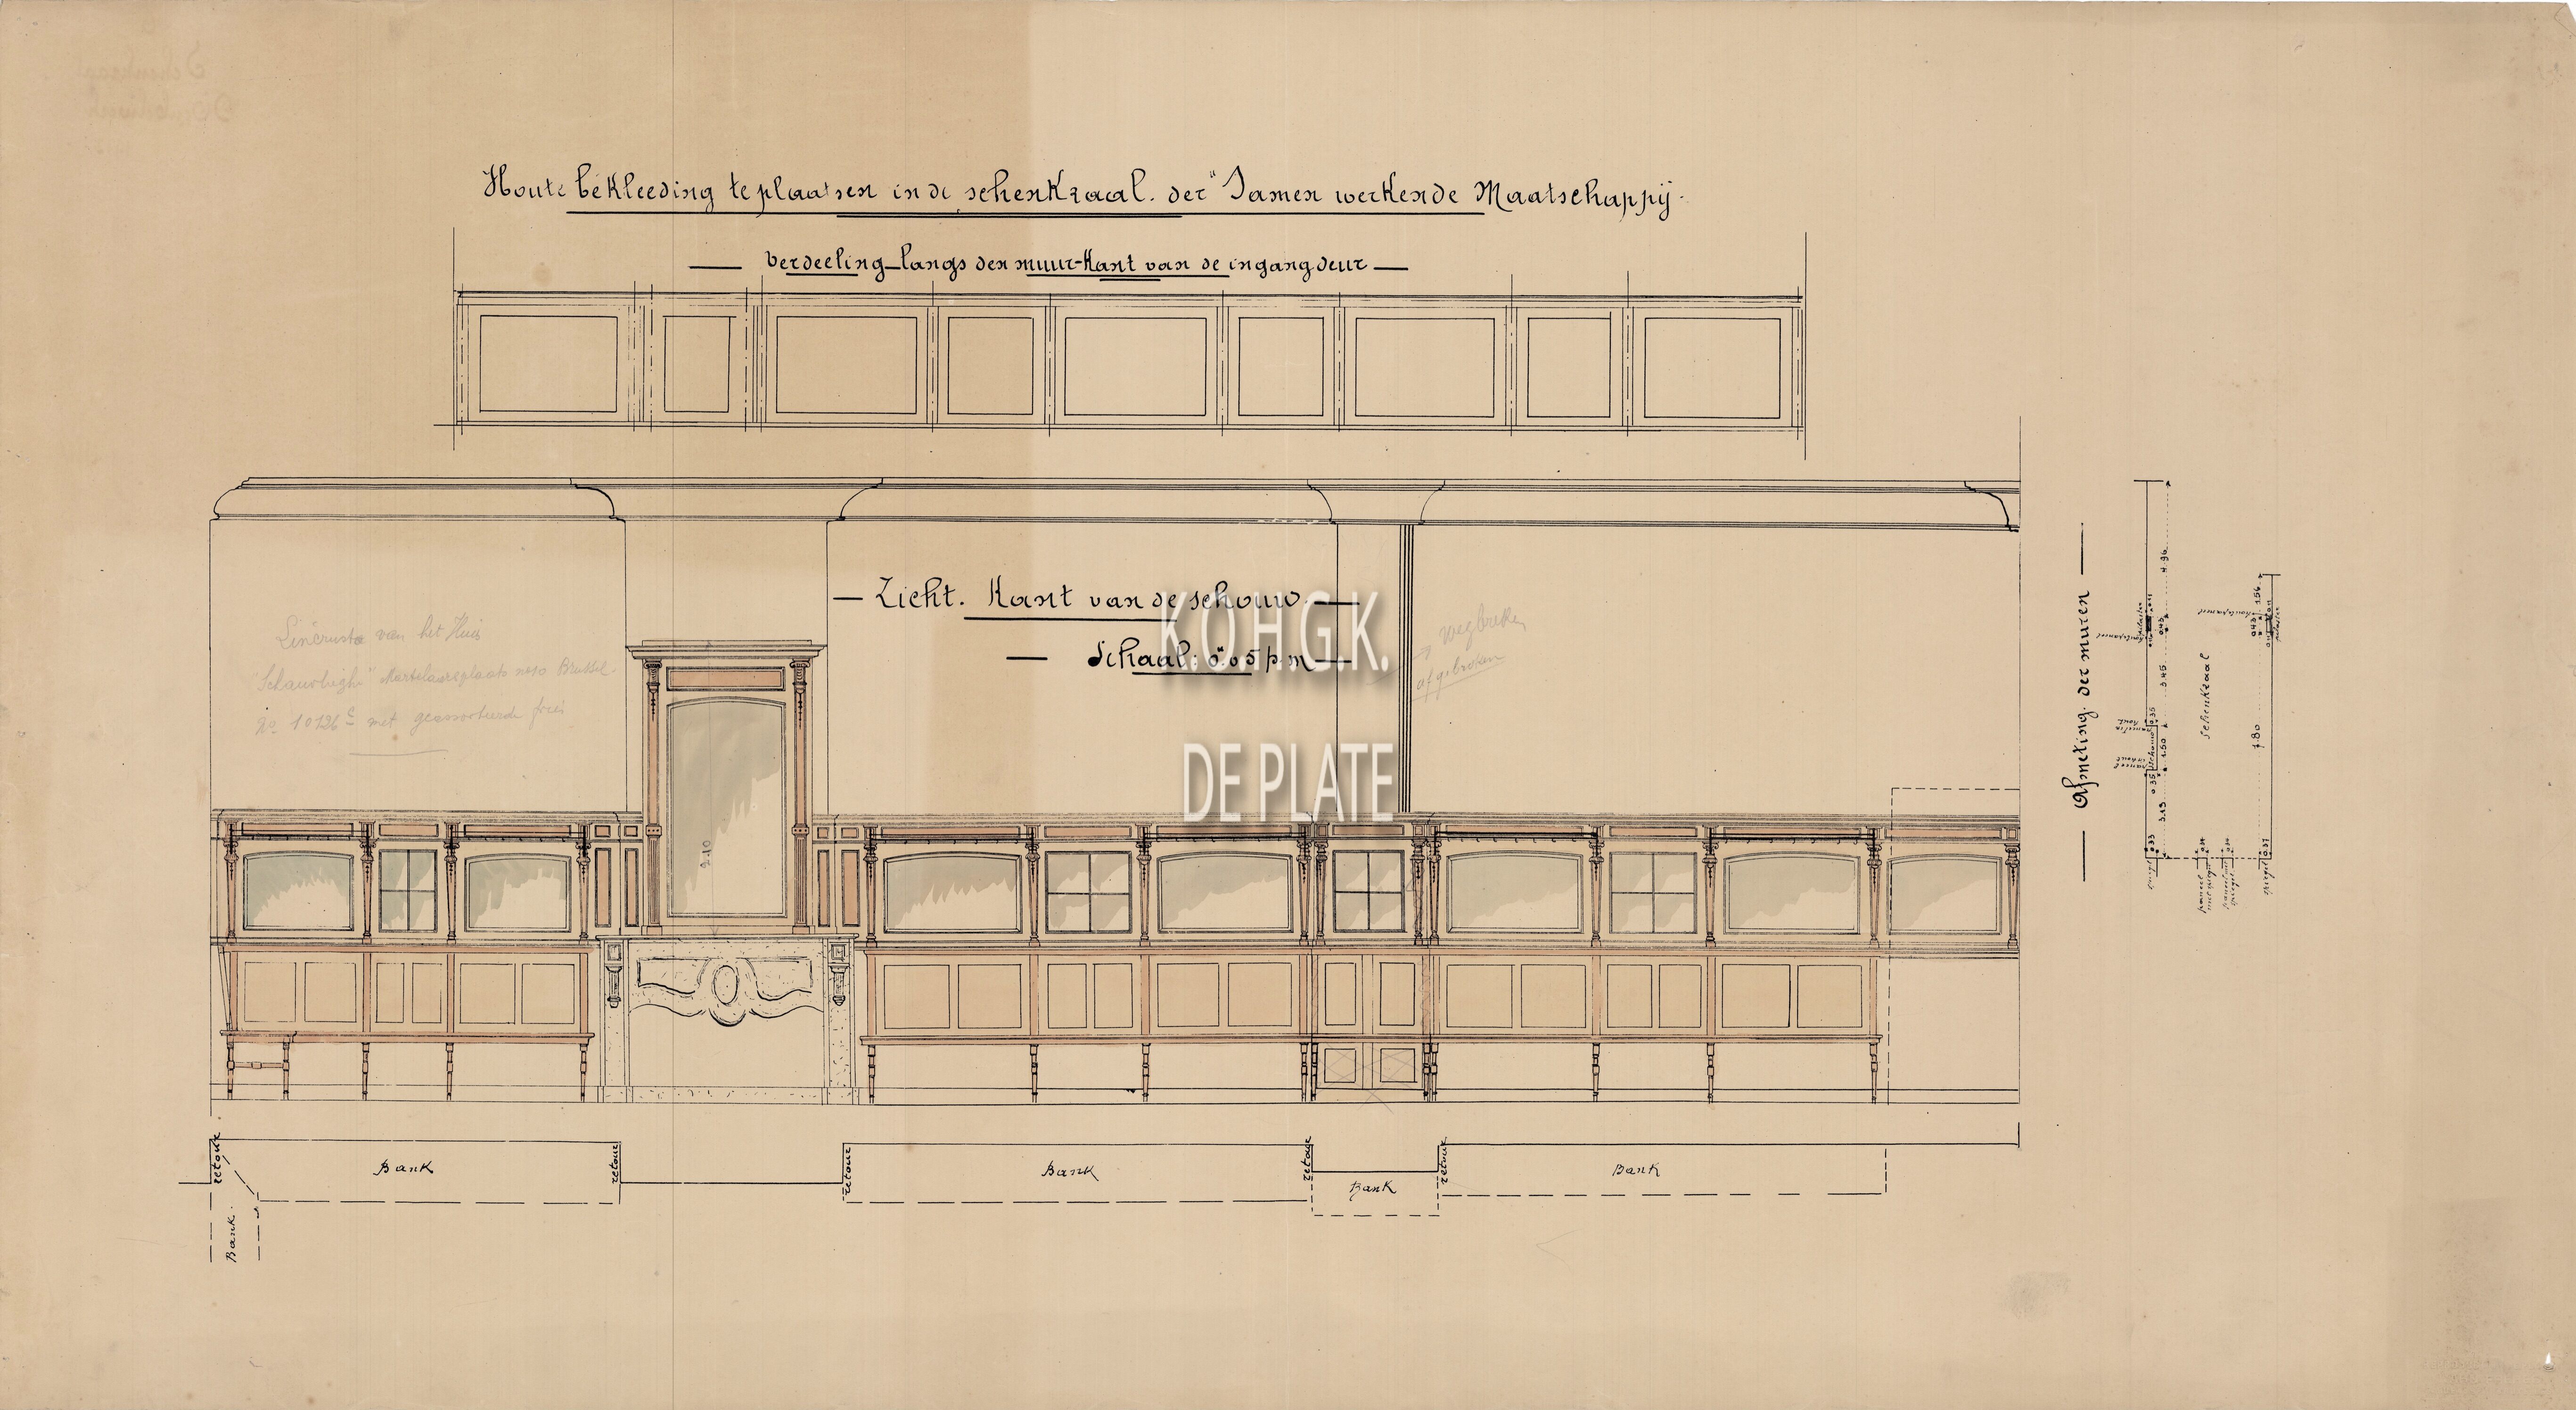 Houte bekleeding te plaatsen in de schenkzaal. der "Samen werkende Maatschappij.
verdeeling langs den muur-kant van de ingangdeur
Zicht. Kant van de schouw.
Schaal: 0m05 p.m
Lincrusta van het Huis
Martelaarsplaats no 10 Brussel
No 10126 c met geassorteerde fries
wegbreken
afgebroken
K.O.H.G.K.
DE PLATE
2.10
retour
Bank
retour
retour
Bank
retour
Bank
retour
Bank
Bank.
Afmeting. der muren
4.96
0.43
3.45
0.35
schouw
1.50
0.35
3.13
0.33
spiegel
Schenkzaal
1.56
0.43
7.80
0.37
spiegel